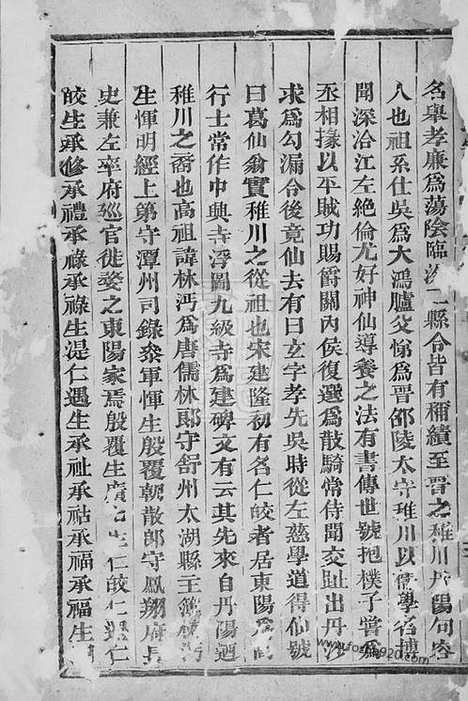 名舉孝廉爲蕩陰臨汾二縣令皆有稱績至晋之稚川丹陽句容
人也祖系仕吳爲大鴻臚父悌爲晋邵陵太守稚川以儒學名博
聞深洽江左絶倫尤好神仙導養之法有書傳世號抱樸子嘗爲
丞相掾以平賊功賜爵關內侯復選爲散騎常侍聞交趾出丹沙
求爲勾漏令後竟仙去有曰玄字孝先吳時從左慈學道得仙號
曰葛仙翁實稚川之從祖也宋建隆初有名仁皎者居東陽爲
行士常作中興寺浮圖九級寺爲建碑文有云其先來自丹陽迺
稚川之裔也高祖諱林沔爲唐儒林郎守舒州太湖縣主簿
生惲明經上第守潭州司錄叅軍惲生殷覆朝散郎守鳳翔府長
史兼左率府廵官徙婺之東陽家焉殷覆生 生仁皎仁遇仁
皎生承修承禮承祿承祿生湜仁遇生承祉承祜承福承福生